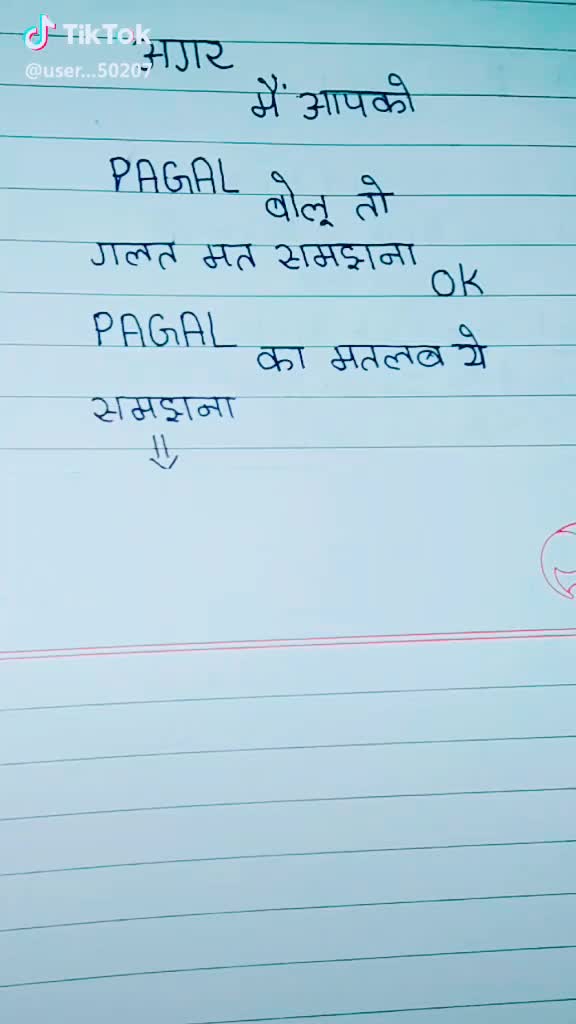 TikTok
@user...50207
अगर
मैं आपको
PAGAL बोलू तो
गलत मत समझना OK
PAGAL का मतलब ये
समझना